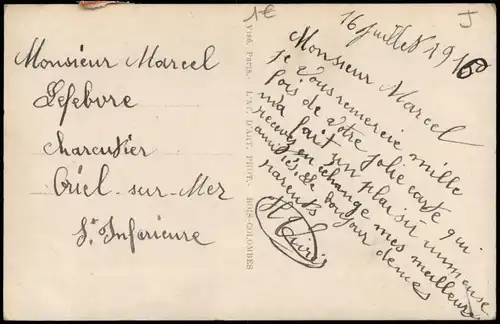 1€
J
16 Juillet 191
Monsieur Marcel
Lefebvre
Charcutier
Criel-sur-Mer
Sne Inferieure
Visé, Paris.- L'AR. D'ART. PHOT.- BOIS-COLOMBES
Monsieur Marcel
je vous remercie mille
fois de votre jolie carte qui
m'a fait un plaisir immense
recevez en échange mes meilleures
amitiés le bonjour de mes
parents